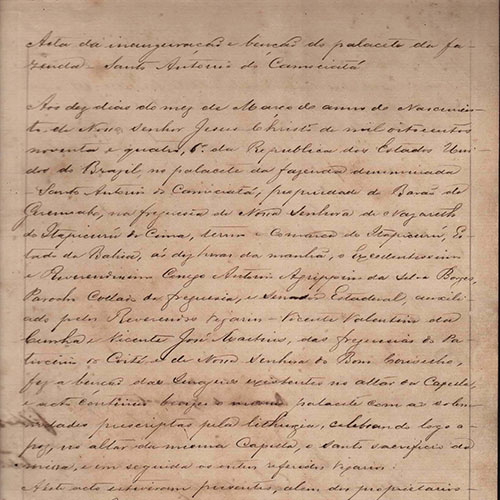 Acta da inauguração e benção do palacete da fa-
zenda - Santo Antonio do Camuciatá
Aos dez dias do mez de Março do anno do Nascimen-
to de Nosso Senhor Jesus Christo de mil oitocentos
noventa e quatro, 6º da Republica dos Estados Uni-
dos do Brazil, no palacete da fazenda denominada
- Santo Antonio do Camuciatá, propriedade do Barão de
Geremoabo, na freguesia de Nossa Senhora de Nazareth
do Itapicurú de Cima, termo e Comarca do Itapicurú, Es-
tado da Bahia, ás dez horas da manhã, o Excellentissimo
e Reverendissimo Conego Antonio Agrippino da Silva Borges,
Parocho Collado da freguesia, e Senador Estadoal, auxili-
ado pelos Reverendos Vigarios - Vicente Valentim da
Cunha e Vicente José Martins, das freguesias do Pa-
trocinio do Coité e de Nossa Senhora do Bom Conselho,
fez a benção das Imagens existentes no altar da Capella,
e acto continuo benzeo o mesmo palacete com as solem-
nidades prescriptas pela lithurgia, celebrando logo a-
pos, no altar da mesma Capella, o santo sacrificio da
missa, e em seguida os outros referidos Vigarios.
A este acto estiveram presentes, alem dos proprietarios -